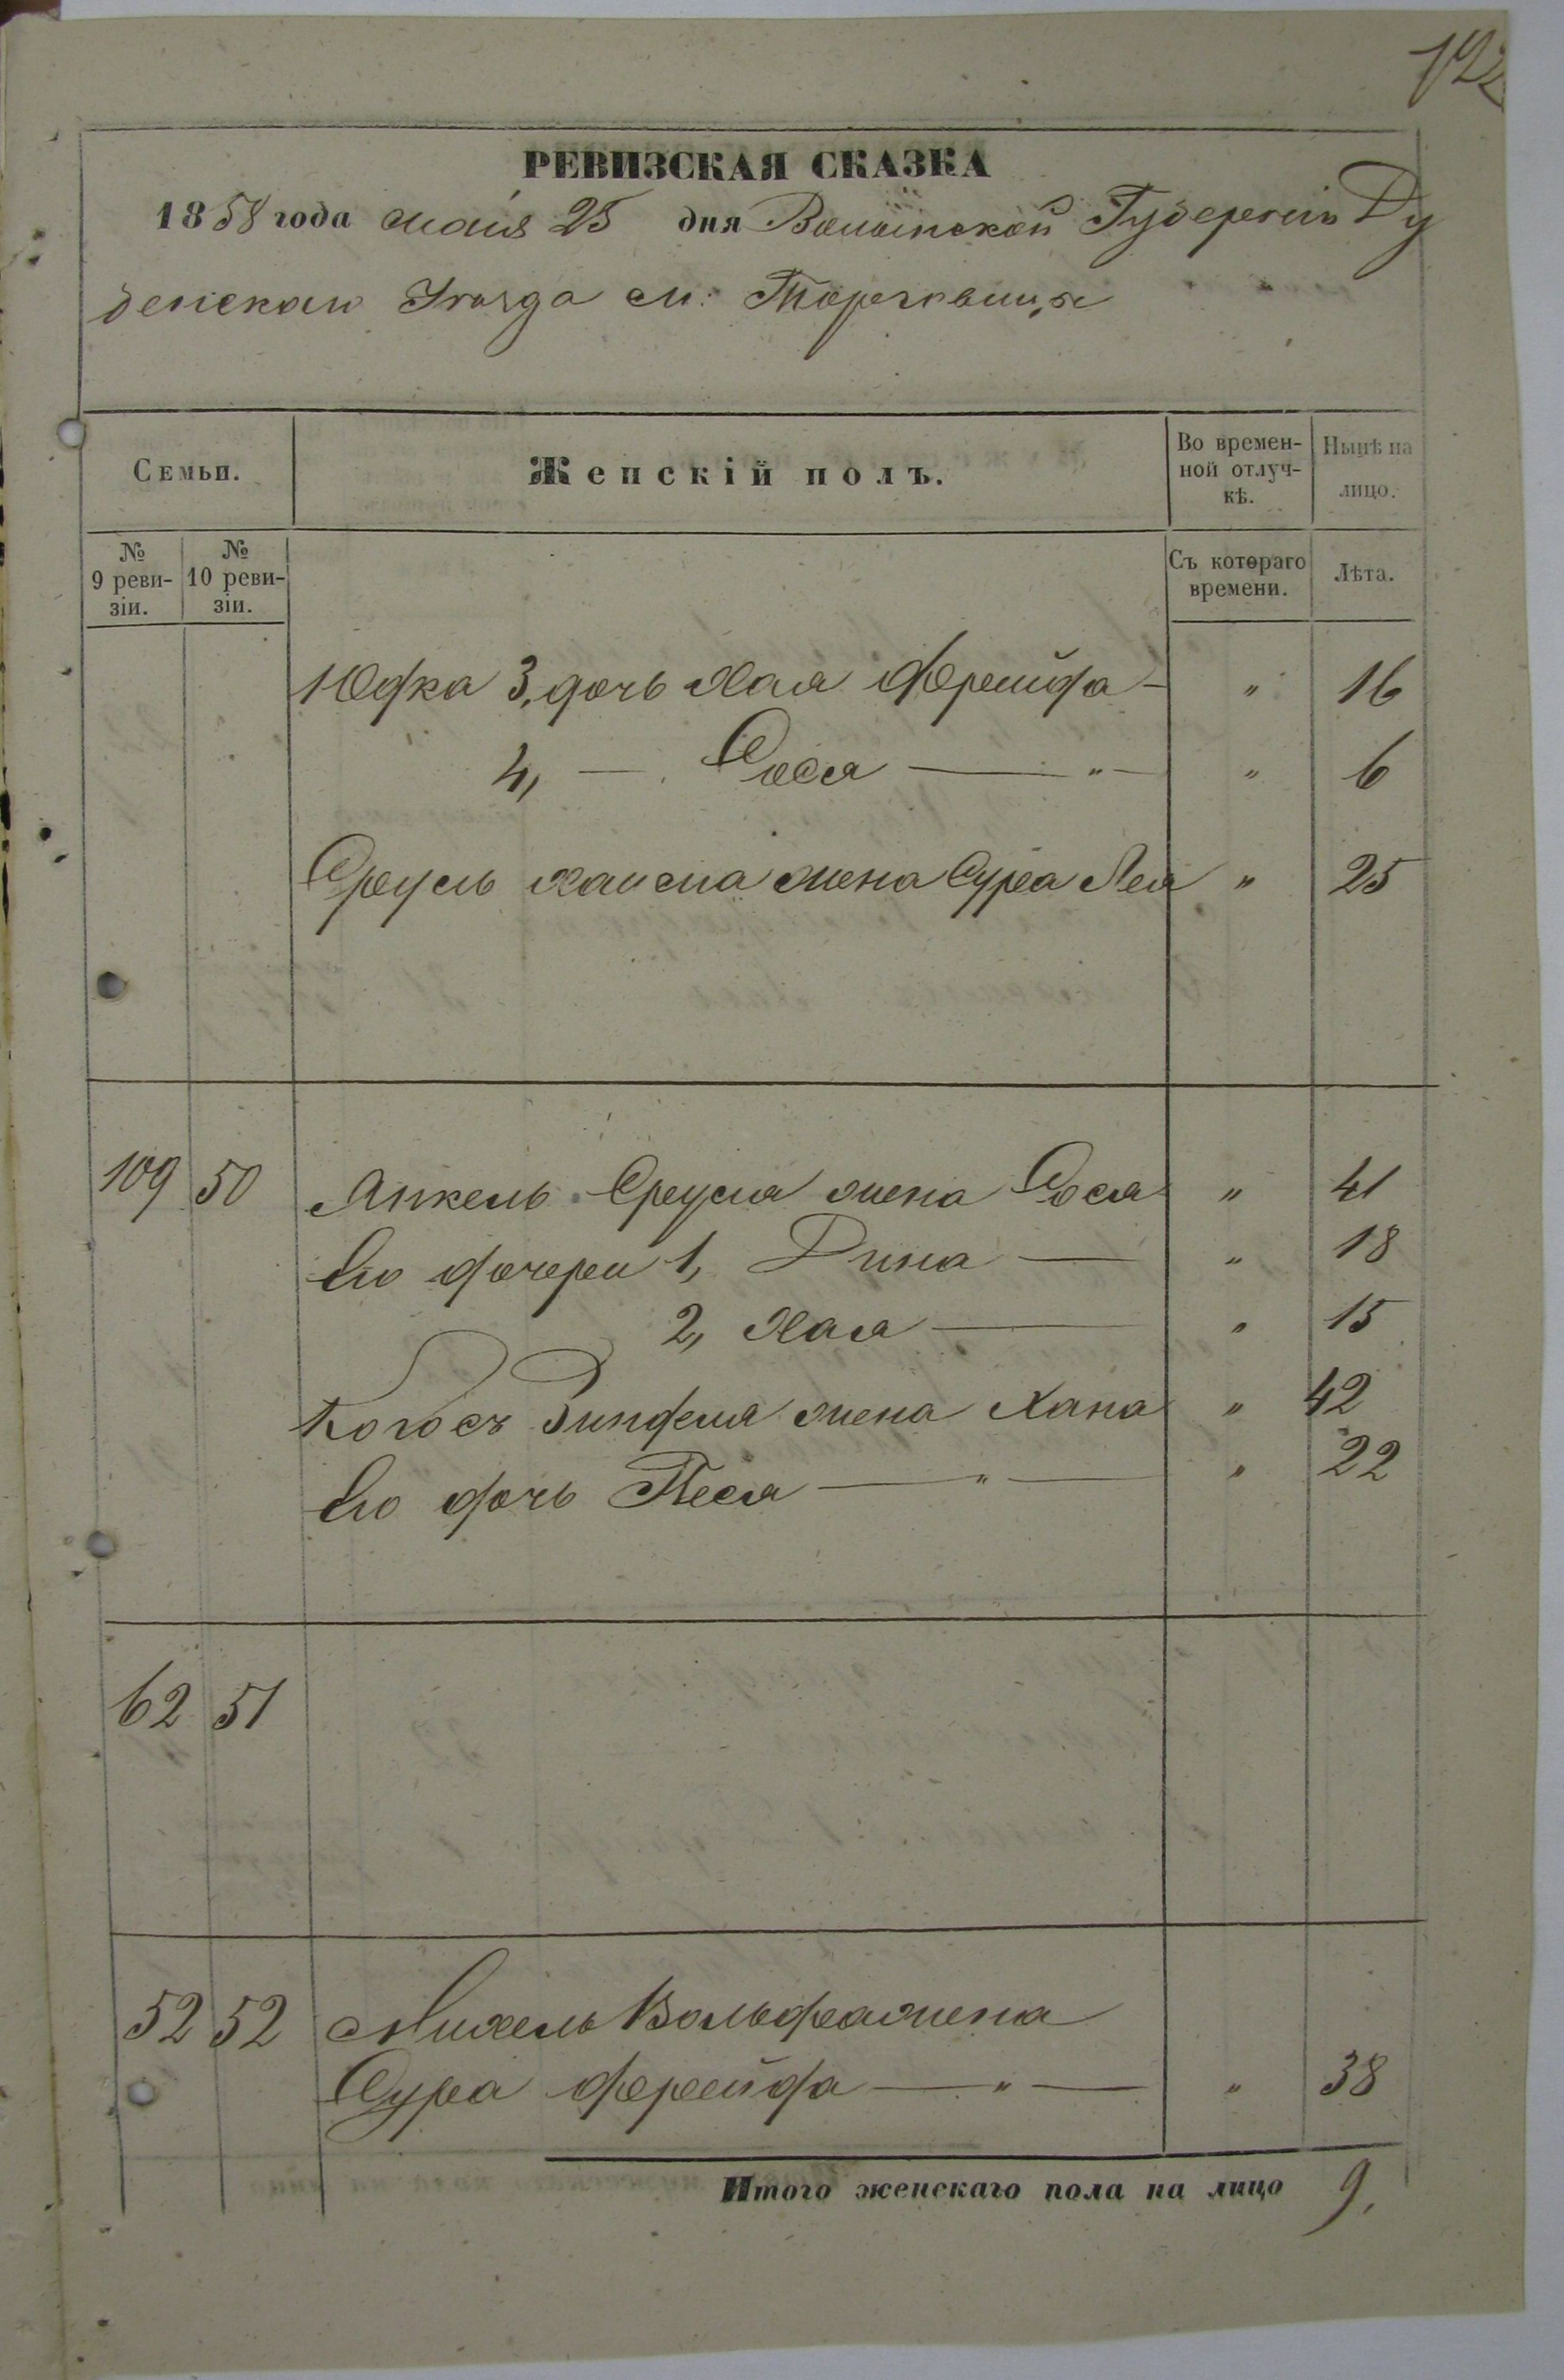 192
РЕВИЗСКАЯ СКАЗКА
1858 года маія 25 дня Волынской Губерніи Ду
бенскаго Уѣзда м: Торговицы
Семьи.
Женскій полъ.
Во времен-
ной отлуч-
кѣ.
Нынѣ на
лицо.
№
9 реви-
зіи.
№
10 реви-
зіи.
Съ котораго
времени.
Лѣта.
Юдка 3, дочь Хая Фрейда — " 16
4, — Сося — " — " 6
Сруль Хаима жена Сура Лея " 25
109 50 Анкель Сруля жена Сося " 41
Его дочери 1, Дина — " 18
2, Хая — " 15
жена Хана " 42
Его дочь Песя — " — " 22
62 51
52 52 Михель Вольфа жена
Сура Фрейда — " — " 38
Итого женскаго пола на лицо 9.